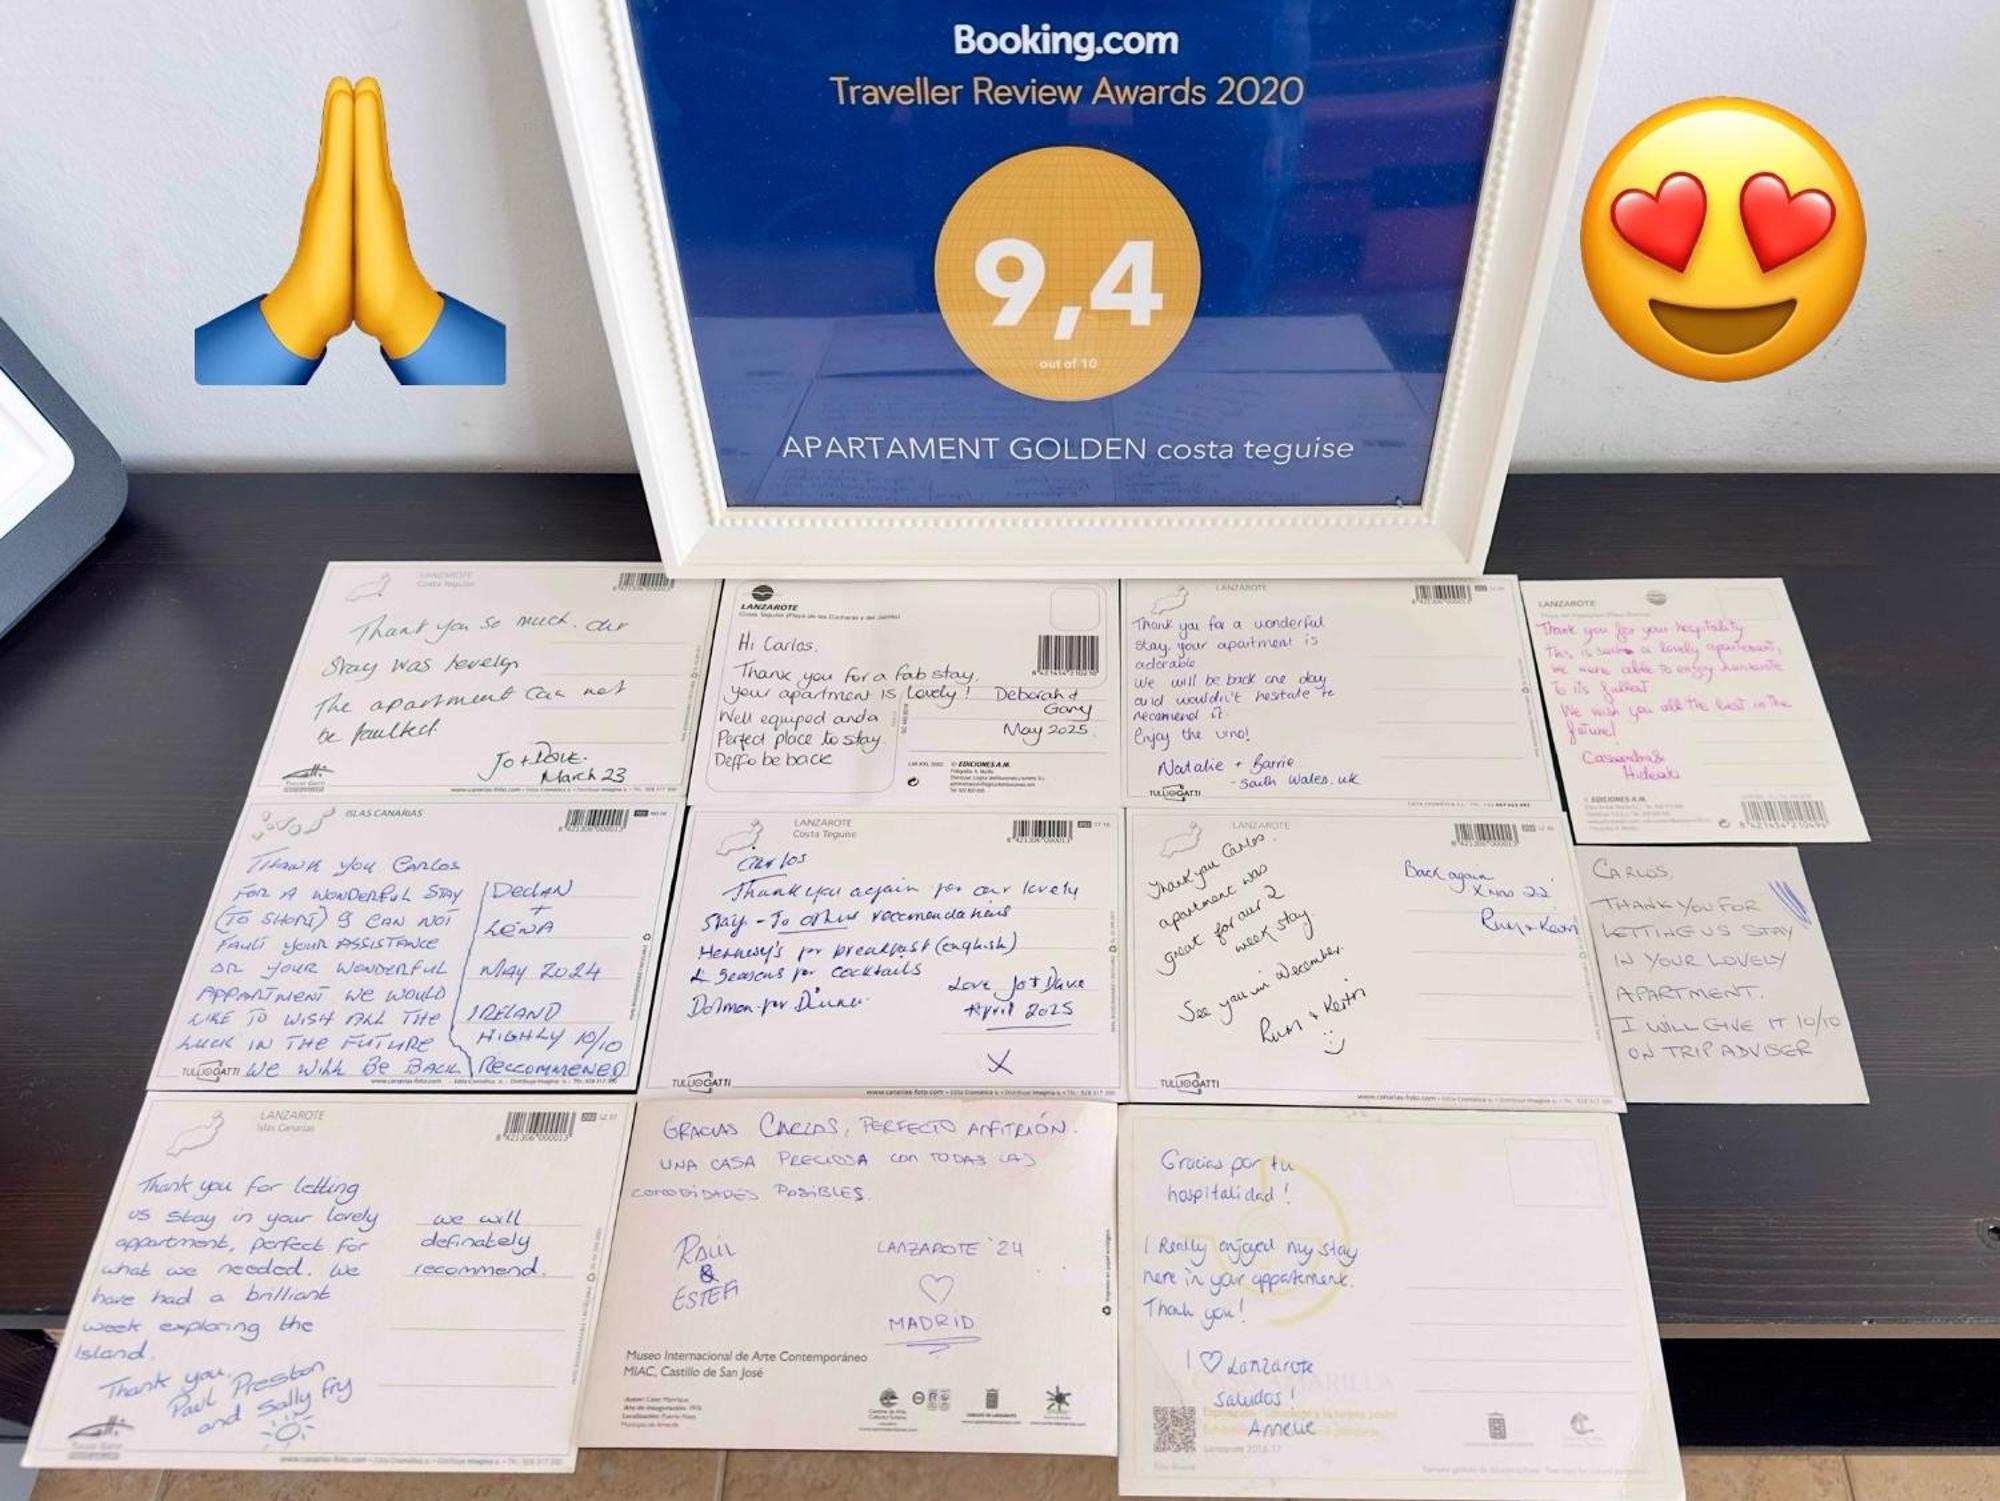 Booking.com
Traveller Review Awards 2020
9,4
out of 10
APARTAMENT GOLDEN costa teguise
LANZAROTE
Costa Teguise
Thank you so much. Our
Stay was lovely
The apartment can not
be faulted.
Jo + Dave.
March 23
LANZAROTE
Costa Teguise (Playa de las Cucharas y del Jablillo)
Hi Carlos.
Thank you for a fab stay,
your apartment is lovely!
Well equiped and a
Perfect place to stay.
Deffo be back
Deborah &
Gary
May 2025.
© EDICIONES A.M.
LANZAROTE
Thank you for a wonderful
stay. your apartment is
adorable
We will be back one day
and wouldn't hesitate to
recomend it.
Enjoy the vino!
Natalie + Barrie
- South Wales. UK
TULLIOGATTI
LANZAROTE
Thank you for your hospitality
This is such a lovely apartment,
We were able to enjoy Lanzarote
to its fullest.
We wish you all the best in the
future!
Cassandra &
Hideaki
© EDICIONES A.M.
8 421454 210496
ISLAS CANARIAS
8 421306 000013
THANK YOU CARLOS
FOR A WONDERFUL STAY
(TO SHORT) I CAN NOT
FAULT YOUR ASSISTANCE
OR YOUR WONDERFUL
APPARTMENT WE WOULD
LIKE TO WISH ALL THE
LUCK IN THE FUTURE
WE WILL BE BACK
DECLAN
+
LENA
MAY 2024
IRELAND
HIGHLY 10/10
RECCOMMENED
TULLIOGATTI
LANZAROTE
Costa Teguise
8 421306 000013
Carlos
Thank you again for our lovely
Stay - To others recomendations
Hennesy's for breakfast (english)
4 Seasons for cocktails
Dolmon for Dinner.
Love Jo + Dave
April 2025
X
TULLIOGATTI
LANZAROTE
8 421306 000013
Thank you Carlos.
apartment was
great for our 2
week stay.
See you in December.
Back again
Xmas 22'
TULLIOGATTI
CARLOS,
THANK YOU FOR
LETTING US STAY
IN YOUR LOVELY
APARTMENT.
I WILL GIVE IT 10/10
ON TRIP ADVISER
LANZAROTE
Islas Canarias
8 421306 000013
Thank you for letting
us stay in your lovely
appartment, perfect for
what we needed. We
have had a brilliant
week exploring the
Island.
Thank you,
Paul Preston
and Sally Fry
we will
definately
recommend.
GRACIAS CARLOS, PERFECTO ANFITRIÓN.
UNA CASA PRECIOSA CON TODAS LAS
COMODIDADES POSIBLES.
RAÚL
&
ESTEFI
LANZAROTE '24
MADRID
Museo Internacional de Arte Contemporáneo
MIAC, Castillo de San José
Gracias por tu
hospitalidad!
I Really enjoyed my stay
here in your appartement.
Thank you!
I ♡ Lanzarote
Saludos!
Annelie
Lanzarote 2016-17